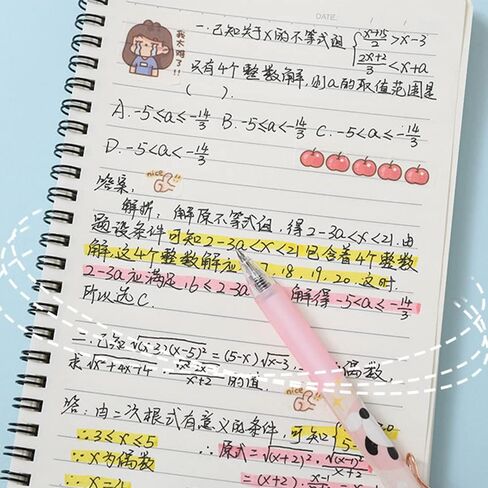 DATE.
一.已知关于x的不等式组 { (x+15)/2 > x-3
我太难了!!
(2x+2)/3 < x+a
只有4个整数解,则a的取值范围是
( ).
A. -5≤a≤-14/3 B. -5≤a<-14/3 C. -5<a≤-14/3
D. -5<a<-14/3
nice
答案:
解析: 解原不等式组,得2-3a<x<21.由
题设条件可知2-3a<x<21包含着4个整数
解,这4个整数解应 17,18,19,20.这时,
2-3a应满足,16≤2-3a 解得-5<a≤-14/3
所以选C.
二.已知√(x-3)(x-5)² = (5-x)√x-3, 偶数,
求 x+2 的值.
nice
答:由二次根式有意义的条件,可知 {
∴3≤x≤5 ∴原式=√(x+2)²·√(x-1)²/x+2
∵x为偶数
=(x+2)·x-1
∴x=4